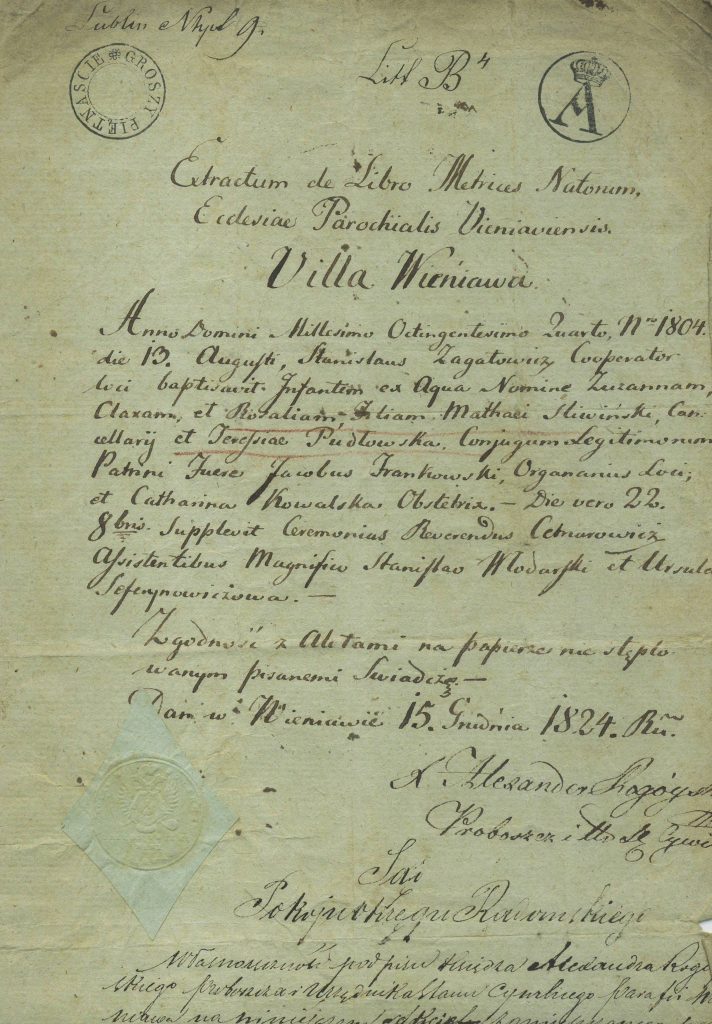 Lublin
GROSZY PIĘTNAŚCIE
Litt B 4
A
Extractum de Libro Metrices Natorum,
Ecclesiae Parochialis Vieniaviensis.
Villa Wieniawa
Anno Domini Millesimo Octingentesimo Quarto, Nro 1804.
die 13. Augusti, Stanislaus Zagatowicz Cooperator
loci baptisavit Infantem ex Aqua Nomine Zuzannam,
Claram, et Rosaliam, Filiam Mathaei Sliwiński, Can-
cellarij et Teresiae Pudłowska, Conjugum Legitimorum
Patrini Fuere Jacobus Frankowski, Organarius Loci,
et Catharina Kowalska Obstetrix. — Die vero 22.
8bris Supplevit Ceremonias Reverendus Cetnarowicz
Assistentibus Magnifico Stanislao Włodarski et Ursula
Seferynowiczowa. —
Zgodność z Aktami na papierze nie stęplo-
wanym pisanemi Swiadczę. —
Dan w Wieniawie 15. Grudnia 1824. Ru.
X Alexander
Proboszcz i
Sąd
Pokoju Okręgu Radomskiego
Własnoręczność podpisu Xiędza Alexandra Rogo
skiego proboszcza i Urzędnika Stanu Cywilnego parafii
na